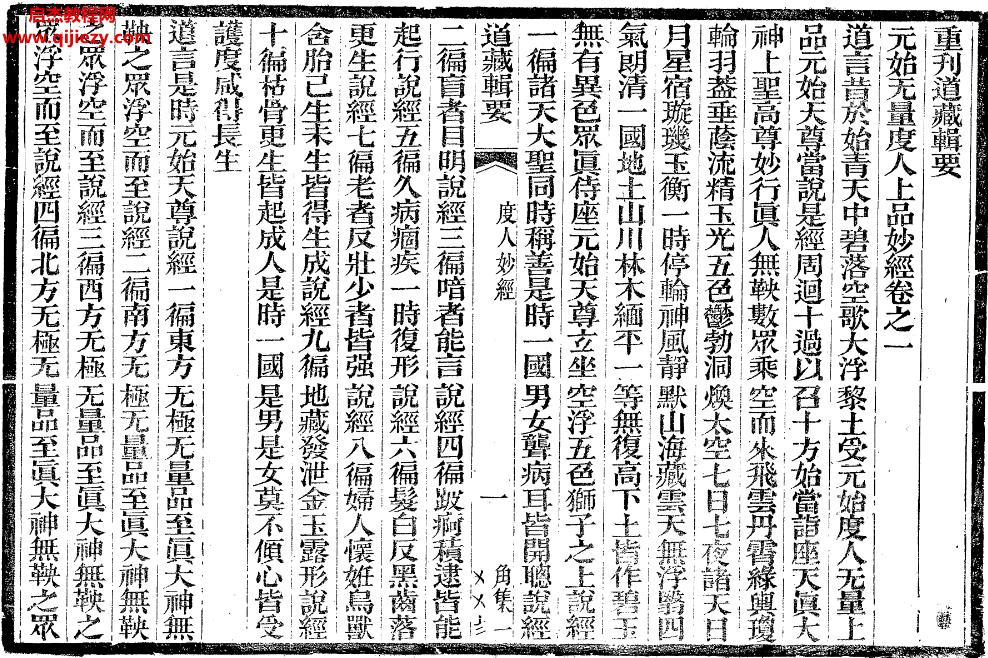 启杰教育网
www.qijiezy.com
重刊道藏輯要
元始无量度人上品妙經卷之一
道言昔於始青天中碧落空歌大浮黎土受元始度人无量上
品元始天尊當說是經周迴十過以召十方始當詣座天真大
神上聖高尊妙行真人無鞅數眾乘空而來飛雲丹霄綠輿瓊
輪羽蓋垂蔭流精玉光五色鬱勃洞煥太空七日七夜諸天日
月星宿璇璣玉衡一時停輪神風靜默山海藏雲天無浮翳四
氣朗清一國地土山川林木緬平一等無復高下土皆作碧玉
無有異色眾真侍座元始天尊玄坐空浮五色獅子之上說經
一徧諸天大聖同時稱善是時一國男女聾病耳皆開聰說經
道藏輯要
度人妙經
一
角集一
二徧盲者目明說經三徧喑者能言說經四徧跛痾積逮皆能
起行說經五徧久病痼疾一時復形說經六徧髮白反黑齒落
更生說經七徧老者反壯少者皆强說經八徧婦人懷姙鳥獸
含胎已生未生皆得生成說經九徧地藏發泄金玉露形說經
十徧枯骨更生皆起成人是時一國是男是女莫不傾心皆受
護度咸得長生
道言是時元始天尊說經一徧東方无極无量品至真大神無
鞅之眾浮空而至說經二徧南方无極无量品至真大神無鞅
之眾浮空而至說經三徧西方无極无量品至真大神無鞅之
眾浮空而至說經四徧北方无極无量品至真大神無鞅之眾